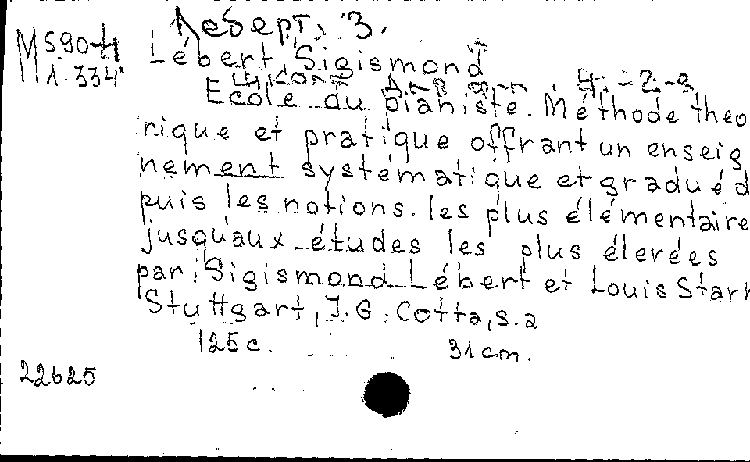 Леберт, З.
М590-Н
1.334
Lébert, Sigismond
Школа для ф-п. Ч. 2-я
Ecole du pianiste. Méthode theo
rique et pratique offrant un enseig
nement systématique et gradué d
puis les notions. les plus élémentaire
jusqu'aux études les plus élevées
par Sigismond Lébert et Louis Stark
Stuttgart, J.G. Cotta, s.a
125 c. 31 cm.
22625